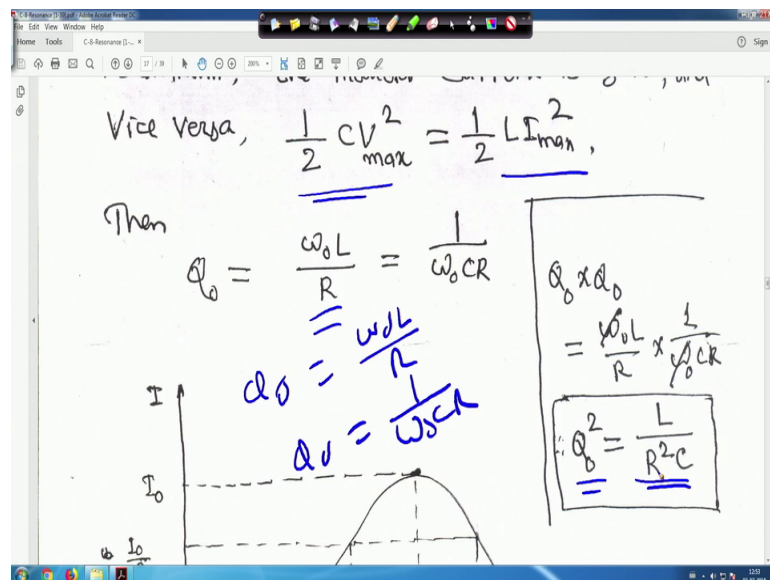 C-8-Resonance [1-39].pdf - Adobe Acrobat Reader DC
File Edit View Window Help
Home Tools C-8-Resonance [1-... × Sign
17 / 39 200%
Vice Versa, 1/2 CV²max = 1/2 LI²max.
Then
Q₀ = ω₀L/R = 1/ω₀CR
Q₀ = ω₀L/R
Q₀ = 1/ω₀CR
Q₀ x Q₀
= ω₀L/R × 1/ω₀CR
∴ Q₀² = L/R²C
I
I₀
I₀
12:53